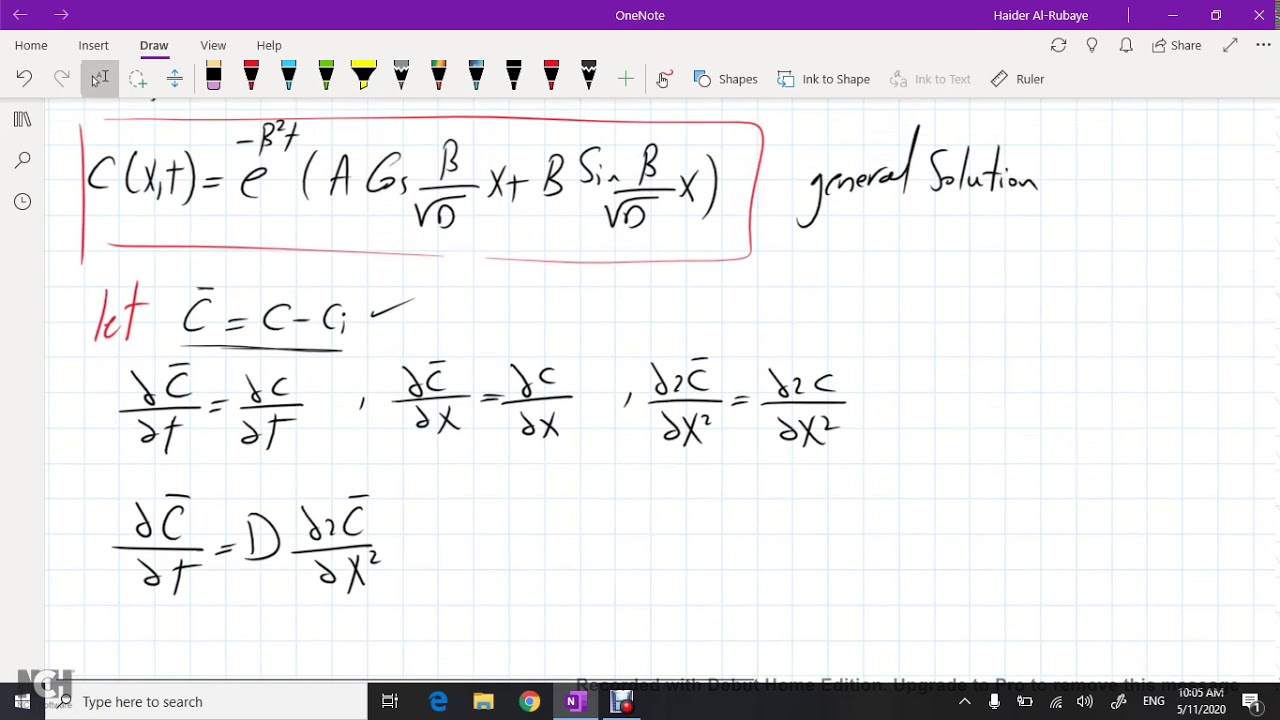 OneNote
Haider Al-Rubaye
Home Insert Draw View Help
Share
Shapes Ink to Shape Ink to Text Math Ruler
C(x,t) = e^{-β²t} (A Cos β/√D x + B Sin β/√D x) general Solution
let C̄ = C - Ci ✓
∂C̄/∂t = ∂C/∂t , ∂C̄/∂x = ∂C/∂x , ∂2C̄/∂x² = ∂2C/∂x²
∂C̄/∂t = D ∂2C̄/∂x²
NCH
Software
Recorded with Debut Home Edition. Upgrade to Pro to remove this message
Type here to search
ENG
10:05 AM
5/11/2020
1